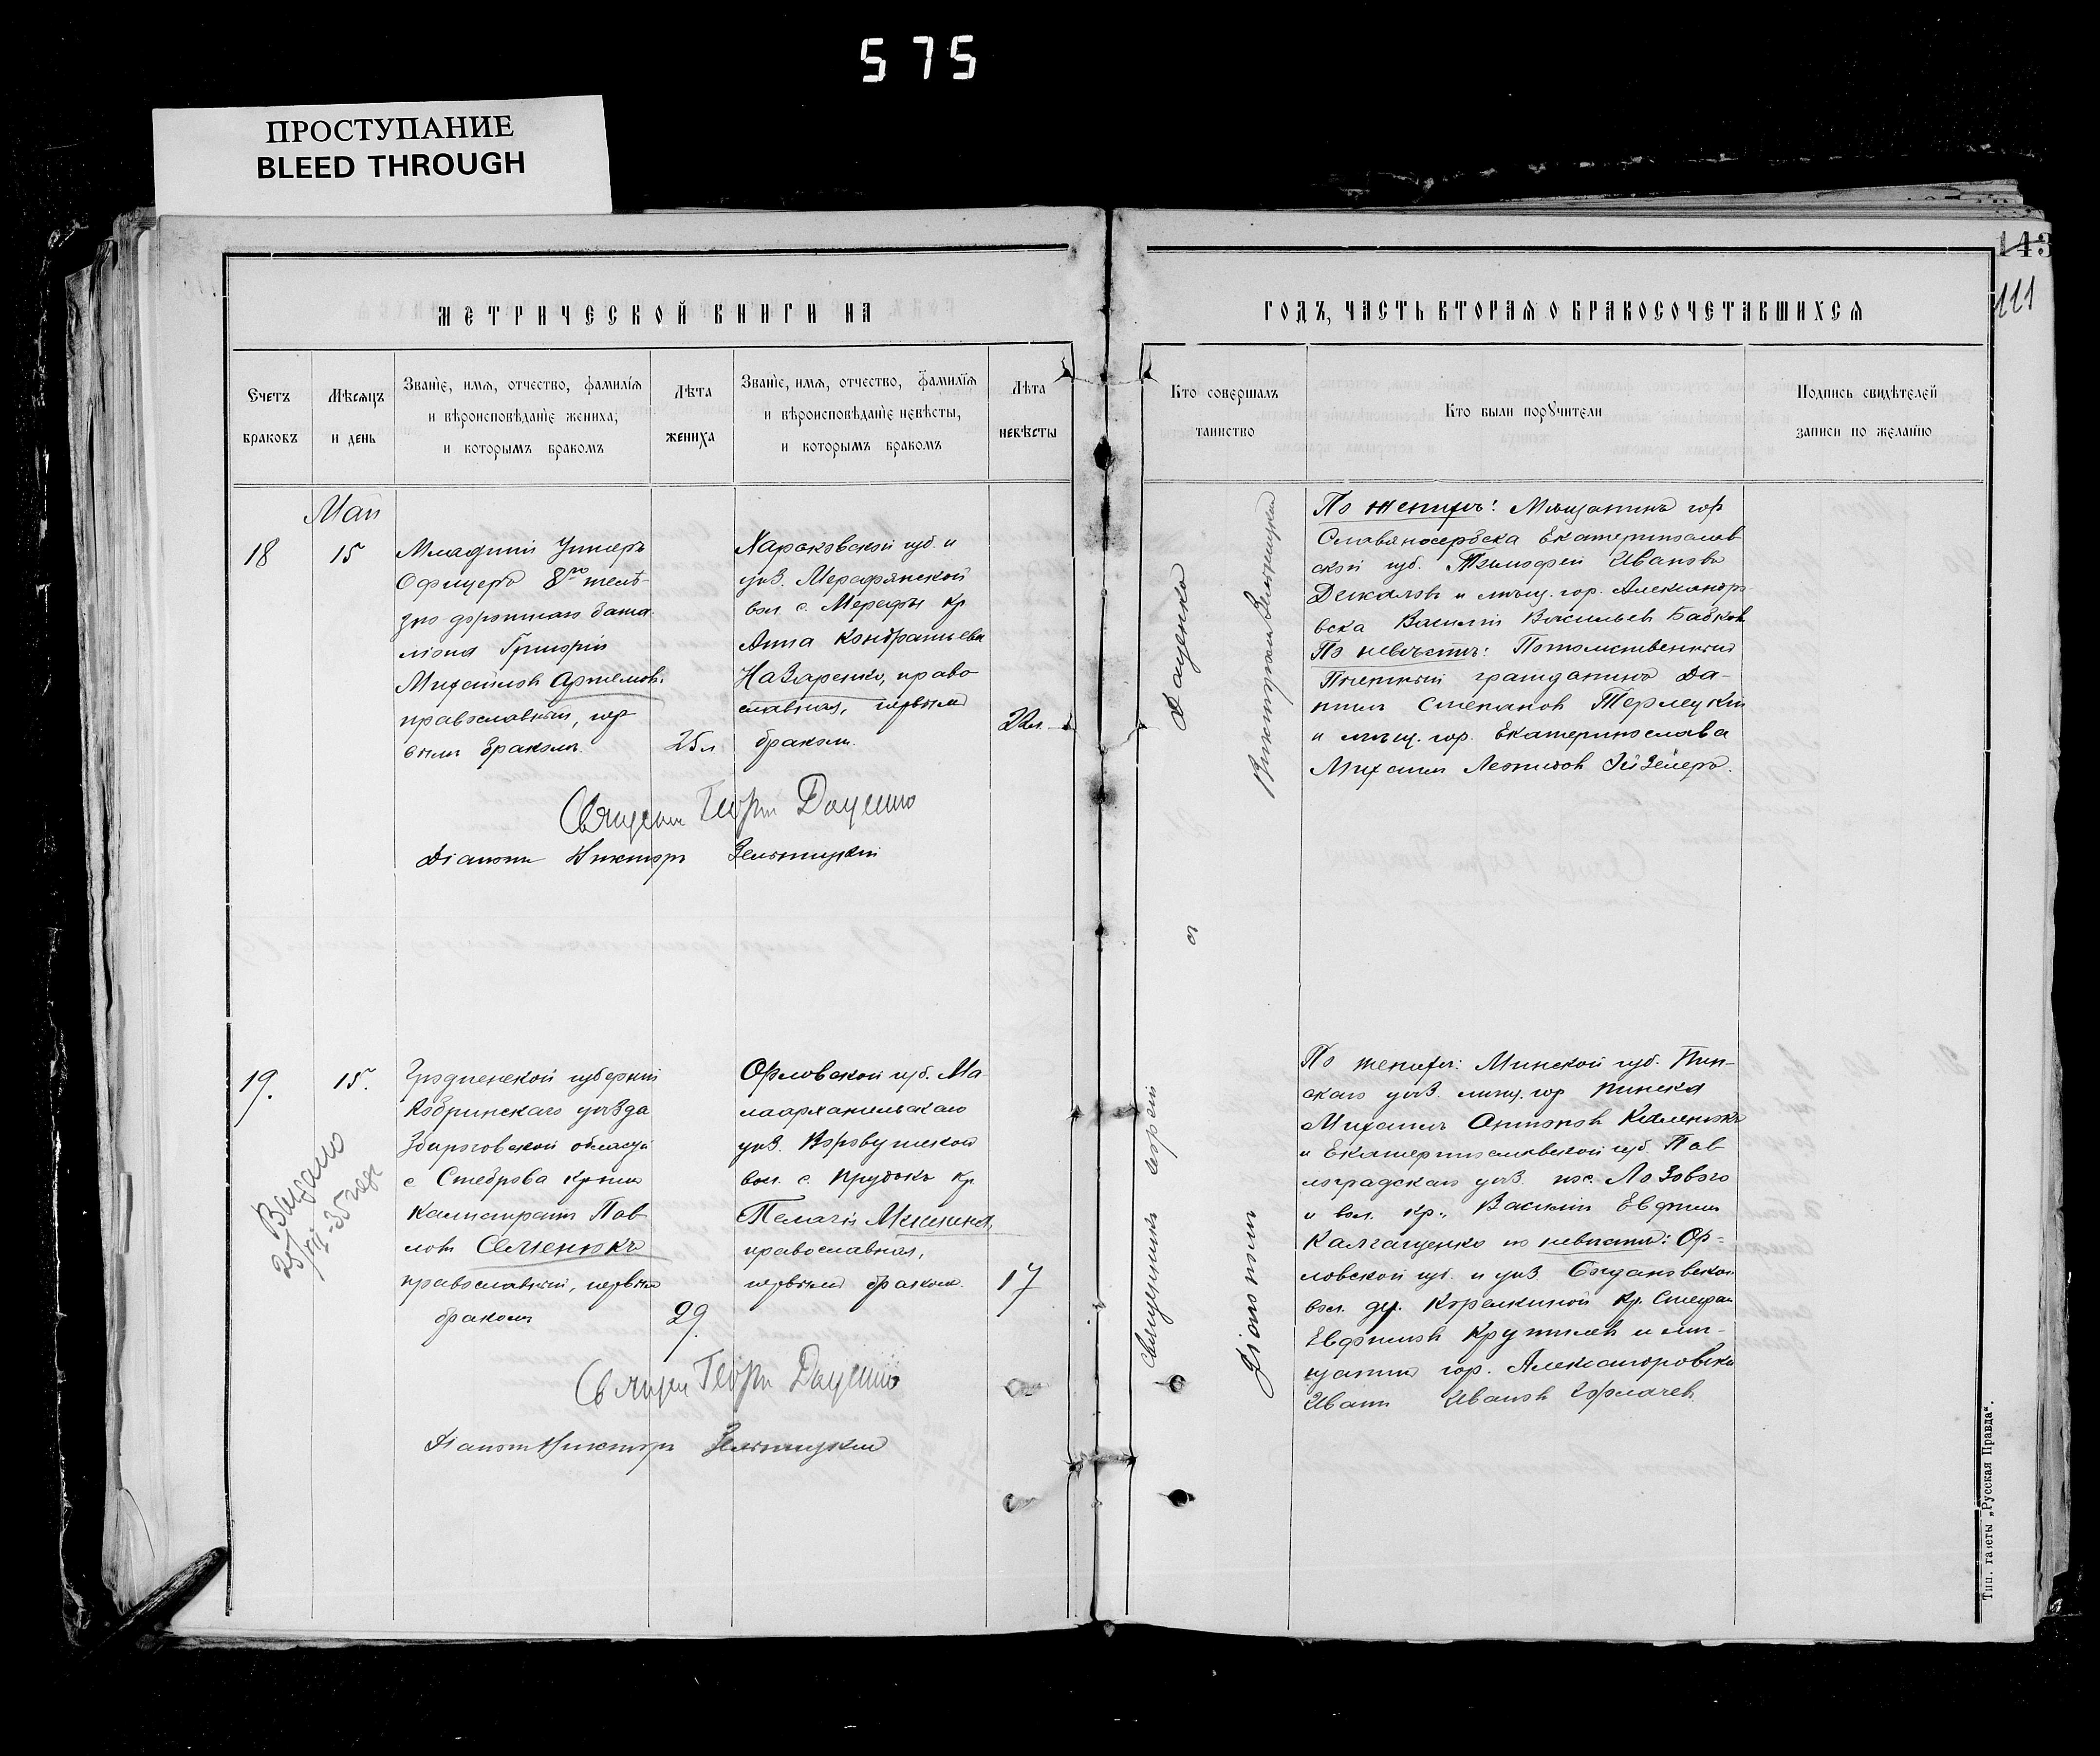 575
ПРОСТУПАНИЕ
BLEED THROUGH
143
111
МЕТРИЧЕСКОЙ КНИГИ НА
ГОДЪ, ЧАСТЬ ВТОРАЯ О БРАКОСОЧЕТАВШИХСЯ
Счетъ
браковъ
Мѣсяцъ
и день
Званіе, имя, отчество, фамилія
и вѣроисповѣданіе жениха,
и которымъ бракомъ
Лѣта
жениха
Званіе, имя, отчество, фамилія
и вѣроисповѣданіе невѣсты,
и которымъ бракомъ
Лѣта
невѣсты
Кто совершалъ
таинство
Кто были поручители
Подпись свидѣтелей
записи по желанію
Май
18
15
Младшій Унтеръ
Офицеръ 8го желѣ-
зно дорожнаго бата-
ліона Григорій
Михайловъ Артемовъ.
православный, пер
вымъ бракомъ.
25 л
Харьковской губ. и
уѣз. Мерефянской
вол. с. Мерефы кр
Анна Кондратьева
Назаренко, право
славная, первымъ
бракомъ.
22 л.
Священ Георгій Даценко
Діаконъ Викторъ Зеленицкій
Даценко
Викторъ Зеленицкій
По женихѣ: Мѣщанинъ гор
Славяносербска Екатеринослав
ской губ. Тимофей Ивановъ
и мѣщ. гор. Александро-
вска Василій Васильевъ Бабковъ
По невѣстѣ: Потомственный
Почетный гражданинъ Да-
ніилъ Степановъ Терлецкій
и мѣщ. гор. Екатеринослава
Михаилъ Леонидовъ
19.
15.
Гродненской губерніи
Кобринскаго уѣзда
Збироговской
с Стеброва кр-нинъ
Калистратъ Пав
ловъ Семенюкъ
православный, первымъ
бракомъ
29.
Орловской губ. Ма
лоархангельскаго
уѣз.
вол. с. Прудокъ кр
Пелагія
православная,
первымъ бракомъ.
17
Выдано
35 года
Священ Георгій Даценко
Діаконъ Викторъ Зеленицкій
Священникъ Георгій
Діаконъ
По женихѣ: Минской губ. Пин-
скаго уѣз. мѣщ. гор Пинска
Михаилъ Антоновъ
и Екатеринославской губ. Пав
лоградскаго уѣз. пос. Лозового
и вол. кр. Василій
по невѣстѣ: Ор-
ловской губ. и уѣз. Богдановской
вол. дер. кр. Стефан
Евфимовъ и мѣ-
щанинъ гор. Александровска
Иванъ Ивановъ
Тип. газеты „Русская Правда“.